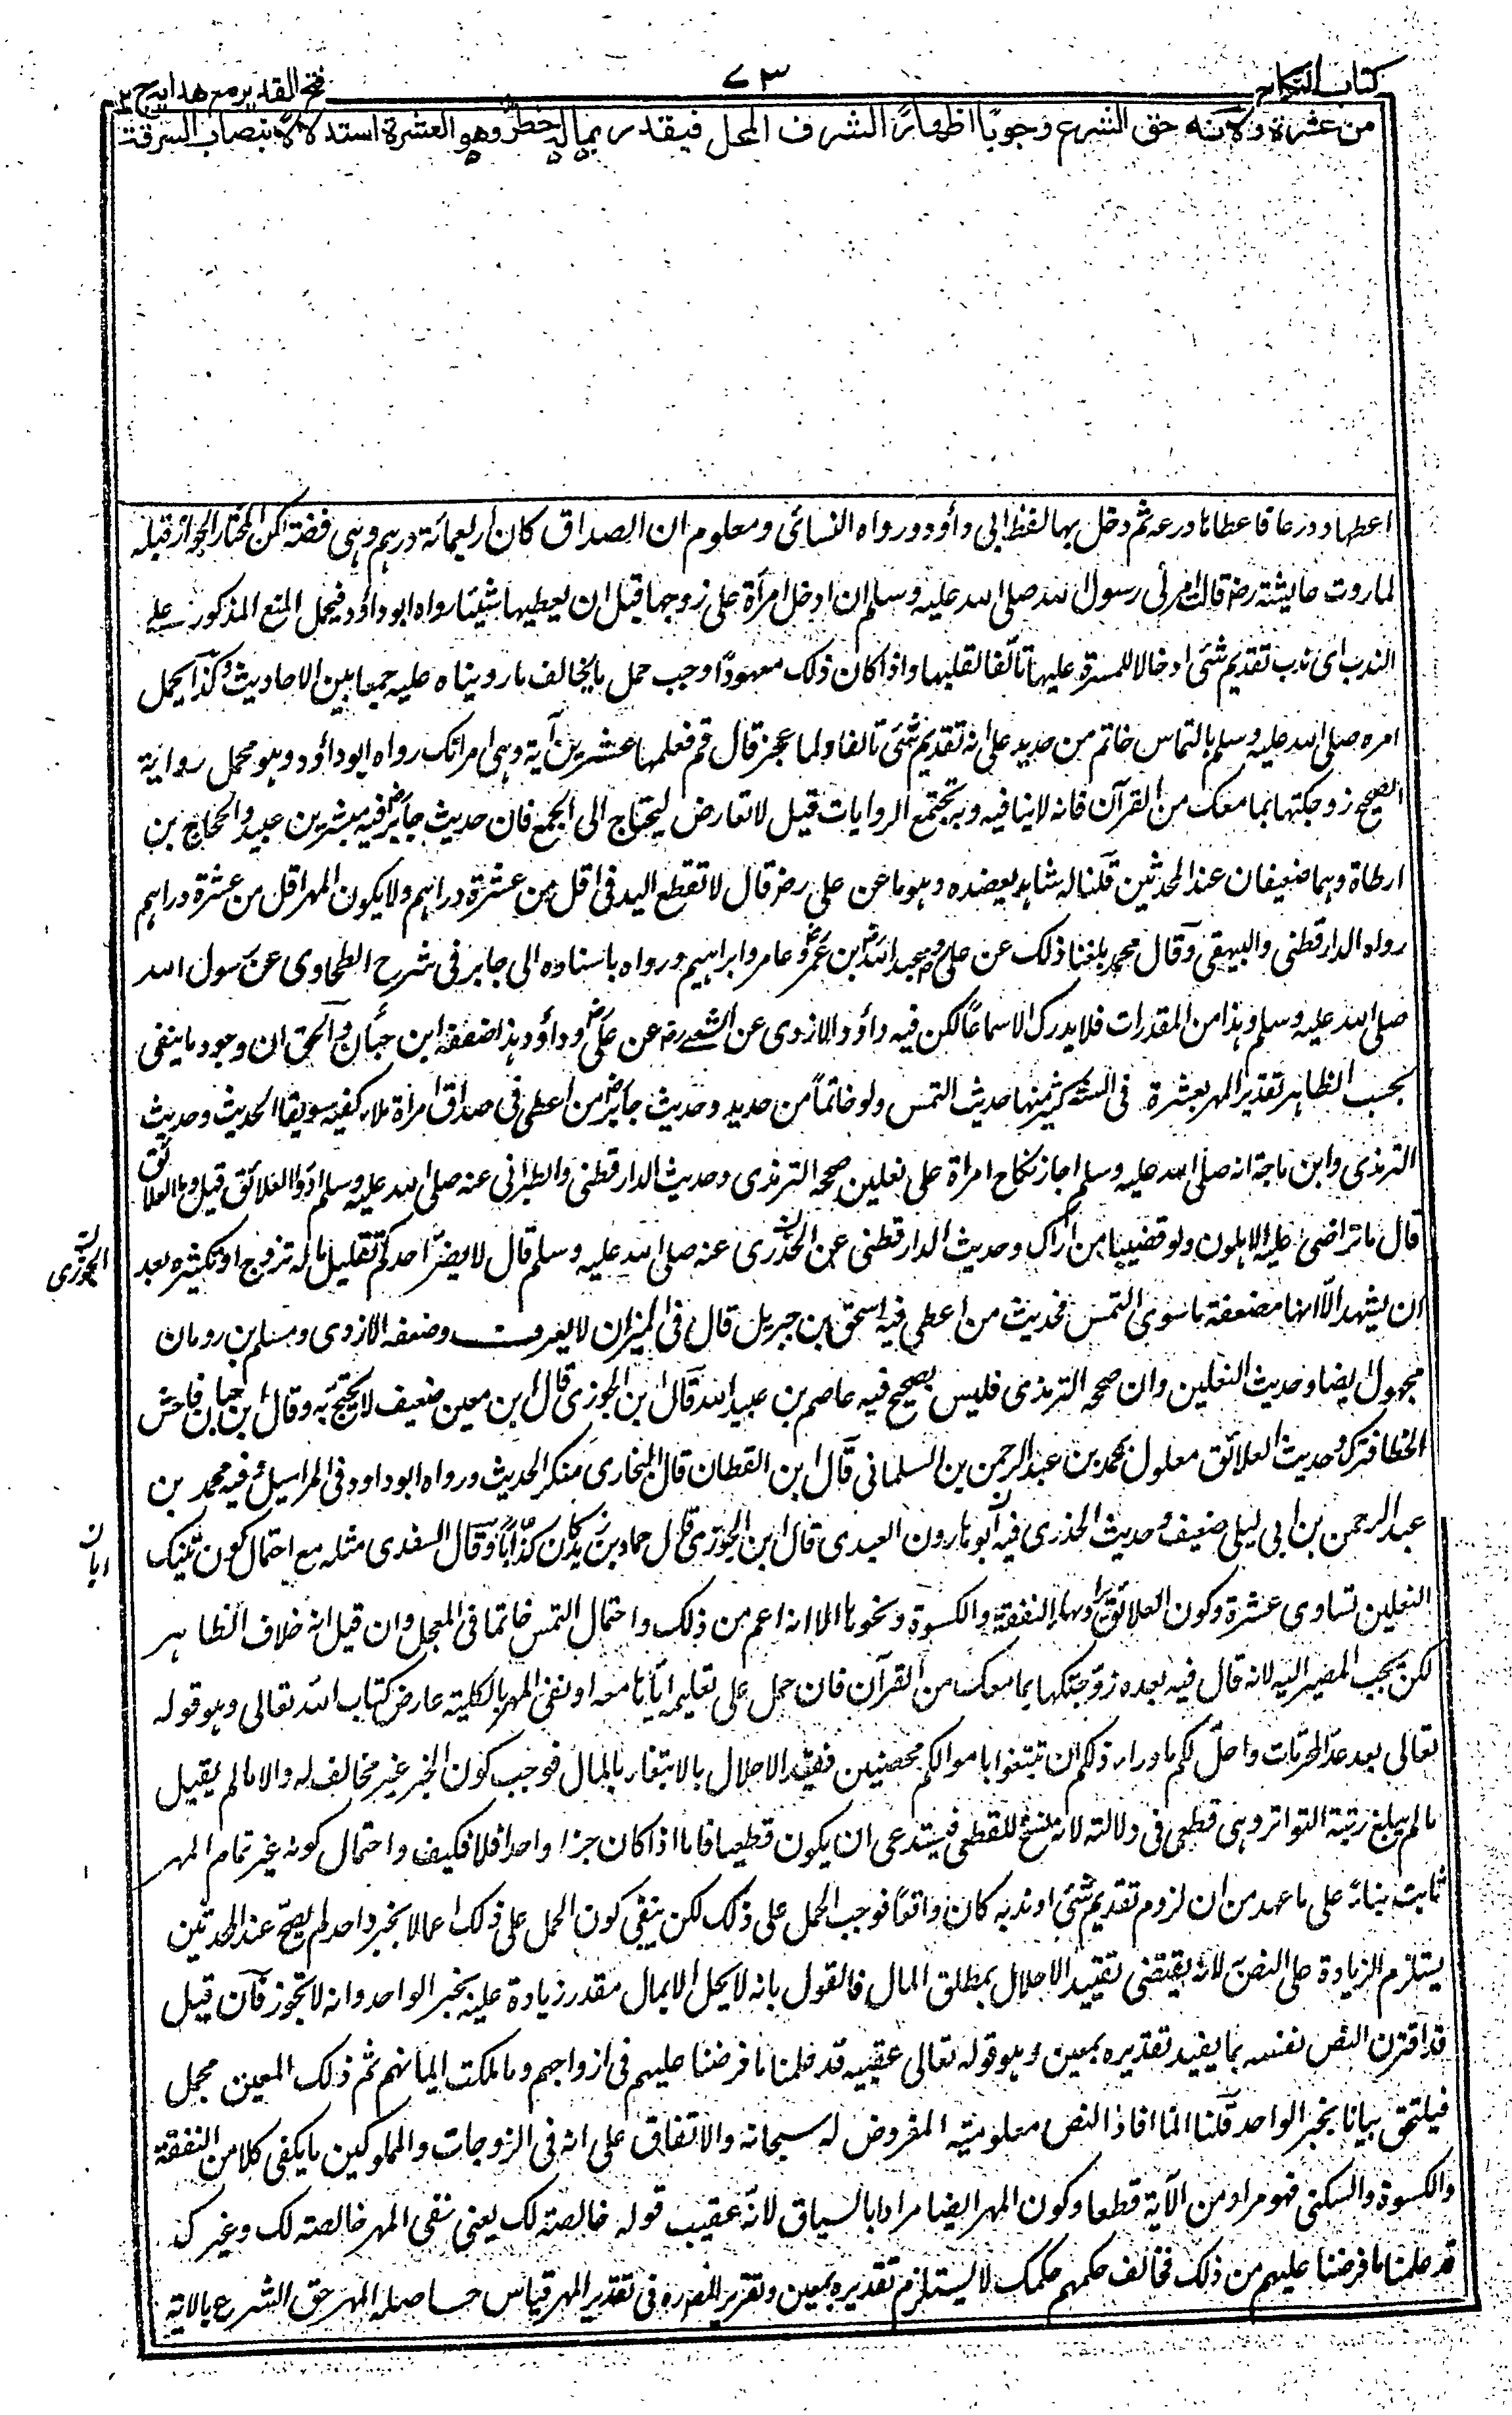 كتاب النكاح
٧٣
فتح القدير مع هدايه ج ٢
من عشرة ولانه حق الشرع وجوبا اظهارا لشرف المحل فيقدر بما له خطر وهو العشرة استدلالا بنصاب السرقة
اعطها درعا فاعطاها درعه ثم دخل بها لفظ ابى داؤد ورواه النسائى ومعلوم ان الصداق كان اربعمائة درهم وهى فضة لكن المختار الجواز قبله
لما روت عايشة رضـ قالت امرنى رسول الله صلى الله عليه وسلم ان ادخل امرأة على زوجها قبل ان يعطيها شيئا رواه ابوداؤد فيحمل المنع المذكور على
الندب اى ندب تقديم شئى ادخالا للمسرة عليها تالفا لقلبها واذا كان ذلك معهودا وجب حمل ما يخالف ما رويناه عليه جمعا بين الاحاديث وكذا يحمل
امره صلى الله عليه وسلم بالتماس خاتم من حديد على انه تقديم شئى تالفا ولما عجز قال قم فعلمها عشرين آية وهى امرأتك رواه ابوداؤد وهو محمل رواية
الصحيح زوجتكها بما معك من القرآن فانه لا ينافيه وبه تجتمع الروايات قيل لا تعارض ليحتاج الى الجمع فان حديث جابرؓ فيه مبشر بن عبيد والحجاج بن
ارطاة وهما ضعيفان عند المحدثين قلنا له شاهد يعضده وهو ما عن على رضـ قال لا تقطع اليد فى اقل من عشرة دراهم ولا يكون المهر اقل من عشرة دراهم
رواه الدارقطنى والبيهقى وقال محمد بلغنا ذلك عن علىؓ وعبدالله بن عمرؓ وعامر وابراهيم ورواه باسناده الى جابر فى شرح الطحاوى عن رسول الله
صلى الله عليه وسلم وهذا من المقدرات فلا يدرك الا سماعا لكن فيه داؤد الازدى عن الشعبى عن علىؓ وداؤد هذا ضعفه ابن حبان والحق ان وجود ما ينفى
بحسب الظاهر تقدير المهر بعشرة فى السنة كثير منها حديث التمس ولو خاتما من حديد وحديث جابرؓ من اعطى فى صداق امرأة ملء كفيه سويقا الحديث وحديث
الترمذى وابن ماجة انه صلى الله عليه وسلم اجاز نكاح امرأة على نعلين صححه الترمذى وحديث الدارقطنى والطبرانى عنه صلى الله عليه وسلم ادوا العلائق قيل وما العلائق
قال ما تراضى عليه الاهلون ولو قضيبا من اراك وحديث الدارقطنى عن الخدرى عنه صلى الله عليه وسلم قال لا يضر احدكم تقليل ماله تزوج او تكثيره بعد
ان يشهد الا انها مضعفة ما سوى التمس فحديث من اعطى فيه اسحق بن جبريل قال فى الميزان لا يعرف وضعفه الازدى ومسلم بن رومان
مجهول ايضا وحديث النعلين وان صححه الترمذى فليس بصحيح فيه عاصم بن عبيدالله قال ابن الجوزى قال ابن معين ضعيف لا يحتج به وقال ابن حبان فاحش
الخطأ فترك وحديث العلائق معلول بمحمد بن عبدالرحمن بن السلمانى قال ابن القطان قال البخارى منكر الحديث ورواه ابوداود فى المراسيل وفيه محمد بن
عبدالرحمن بن ابى ليلى ضعيف وحديث الخدرى فيه ابو هارون العبدى قال ابن الجوزى قال حماد بن زيد كان كذابا وقال السعدى مثله مع احتمال كون تينك
النعلين تساوى عشرة وكون العلائق يراد بها النفقة والكسوة ونحوها الا انه اعم من ذلك واحتمال التمس خاتما فى المعجل وان قيل انه خلاف الظاهر
لكن يجب المصير اليه لانه قال فيه بعده زوجتكها بما معك من القرآن فان حمل على تعليمه اياها ما معه او نفى المهر بالكلية عارض كتاب الله تعالى وهو قوله
تعالى بعد عد المحرمات واحل لكم ما وراء ذلكم ان تبتغوا باموالكم محصنين فقيد الاحلال بالابتغاء بالمال فوجب كون الخبر غير مخالف له والا لم يقبل
ما لم يبلغ رتبة التواتر وهى قطعى فى دلالته لانه نسخ للقطعى فيستدعى ان يكون قطعيا فاما اذا كان خبرا واحدا فلا فكيف واحتمال كونه غير تمام المهر
ثابت بناء على ما عهد من ان لزوم تقديم شئى او ندبه كان واقعا فوجب الحمل على ذلك لكن يبقى كون الحمل على ذلك اعمالا بخبر واحد لم يصح عند المحدثين
يستلزم الزيادة على النص لانه يقتضى تقييد الاحلال بمطلق المال فالقول بانه لا يحل الا بمال مقدر زيادة عليه بخبر الواحد وانه لا تجوز فان قيل
قد اقترن النص نفسه بما يفيد تقديره بمعين وهو قوله تعالى عقيبه قد علمنا ما فرضنا عليهم فى ازواجهم وما ملكت ايمانهم ثم ذلك المعين مجمل
فيلتحق بيانا بخبر الواحد قلنا انما افاد النص معلومية المفروض له سبحانه والاتفاق على انه فى الزوجات والمملوكين ما يكفى كلا من النفقة
والكسوة والسكنى فهو مراد من الآية قطعا وكون المهر ايضا مرادا بالسياق لانه عقيب قوله خالصة لك يعنى نفى المهر خالصة لك وغيرك
قد علمنا ما فرضنا عليهم من ذلك فخالف حكمهم حكمك لا يستلزم تقديره بمعين وتقرير المصره فى تقدير المهر قياس حاصله المهر حق الشرع بالآية
الجوزى
ابان